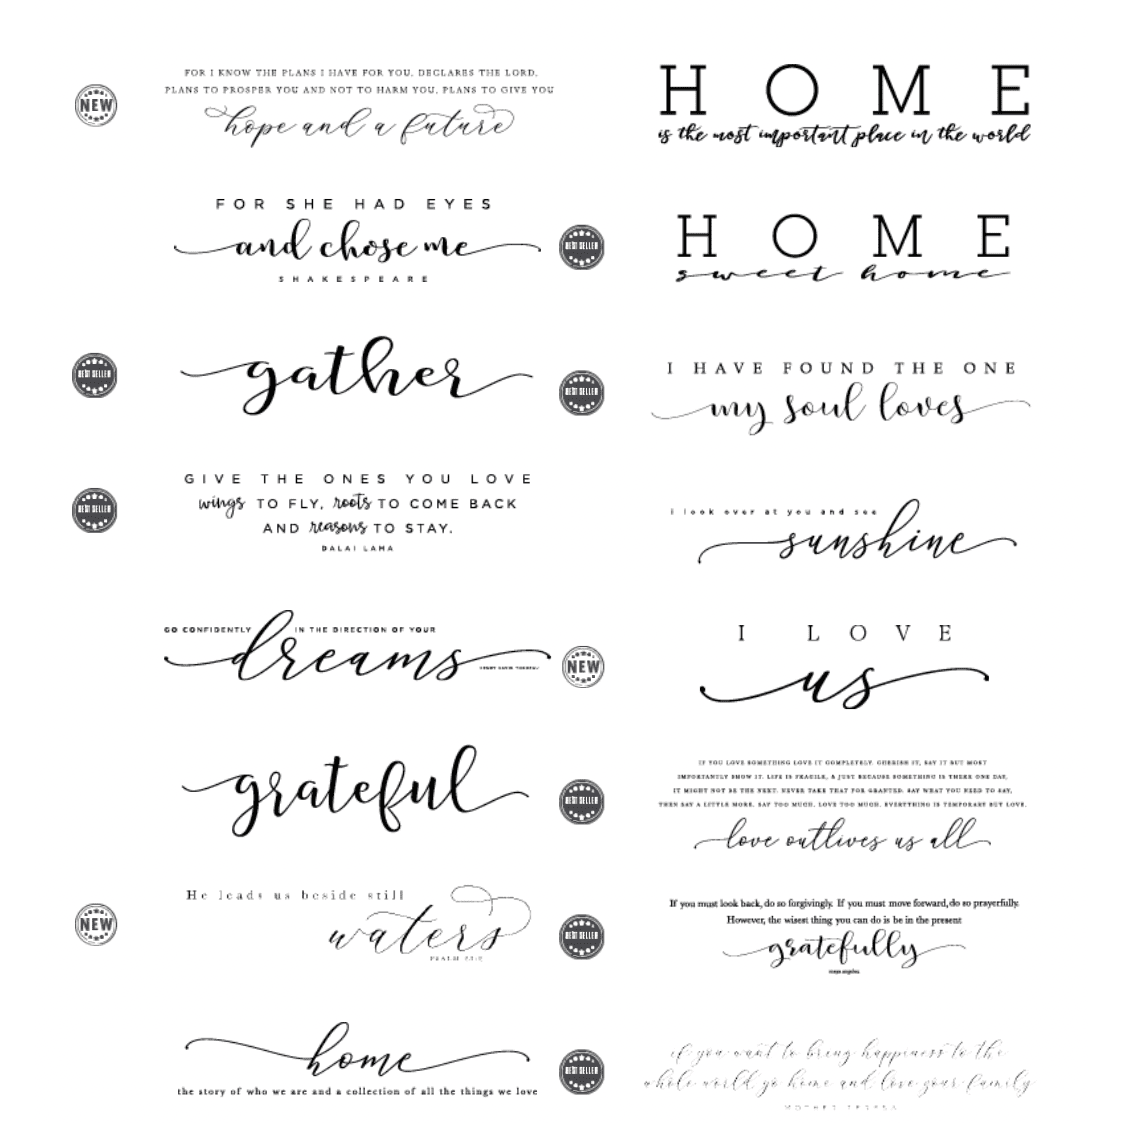 NEW
FOR I KNOW THE PLANS I HAVE FOR YOU, DECLARES THE LORD,
PLANS TO PROSPER YOU AND NOT TO HARM YOU, PLANS TO GIVE YOU
hope and a future
FOR SHE HAD EYES
and chose me
SHAKESPEARE
BEST SELLER
gather
BEST SELLER
GIVE THE ONES YOU LOVE
wings TO FLY, roots TO COME BACK
AND reasons TO STAY.
DALAI LAMA
GO CONFIDENTLY IN THE DIRECTION OF YOUR
dreams
HENRY DAVID THOREAU
grateful
NEW
He leads us beside still
waters
PSALM 23:2
home
the story of who we are and a collection of all the things we love
HOME
is the most important place in the world
BEST SELLER
HOME
sweet home
BEST SELLER
I HAVE FOUND THE ONE
my soul loves
i look over at you and see
sunshine
NEW
I LOVE
us
BEST SELLER
IF YOU LOVE SOMETHING LOVE IT COMPLETELY. CHERISH IT, SAY IT BUT MOST
IMPORTANTLY SHOW IT. LIFE IS FRAGILE, & JUST BECAUSE SOMETHING IS THERE ONE DAY,
IT MIGHT NOT BE THE NEXT. NEVER TAKE THAT FOR GRANTED. SAY WHAT YOU NEED TO SAY,
THEN SAY A LITTLE MORE. SAY TOO MUCH. LOVE TOO MUCH. EVERYTHING IS TEMPORARY BUT LOVE.
love outlives us all
BEST SELLER
If you must look back, do so forgivingly. If you must move forward, do so prayerfully.
However, the wisest thing you can do is be in the present
gratefully
maya angelou
BEST SELLER
if you want to bring happiness to the
whole world go home and love your family
MOTHER TERESA